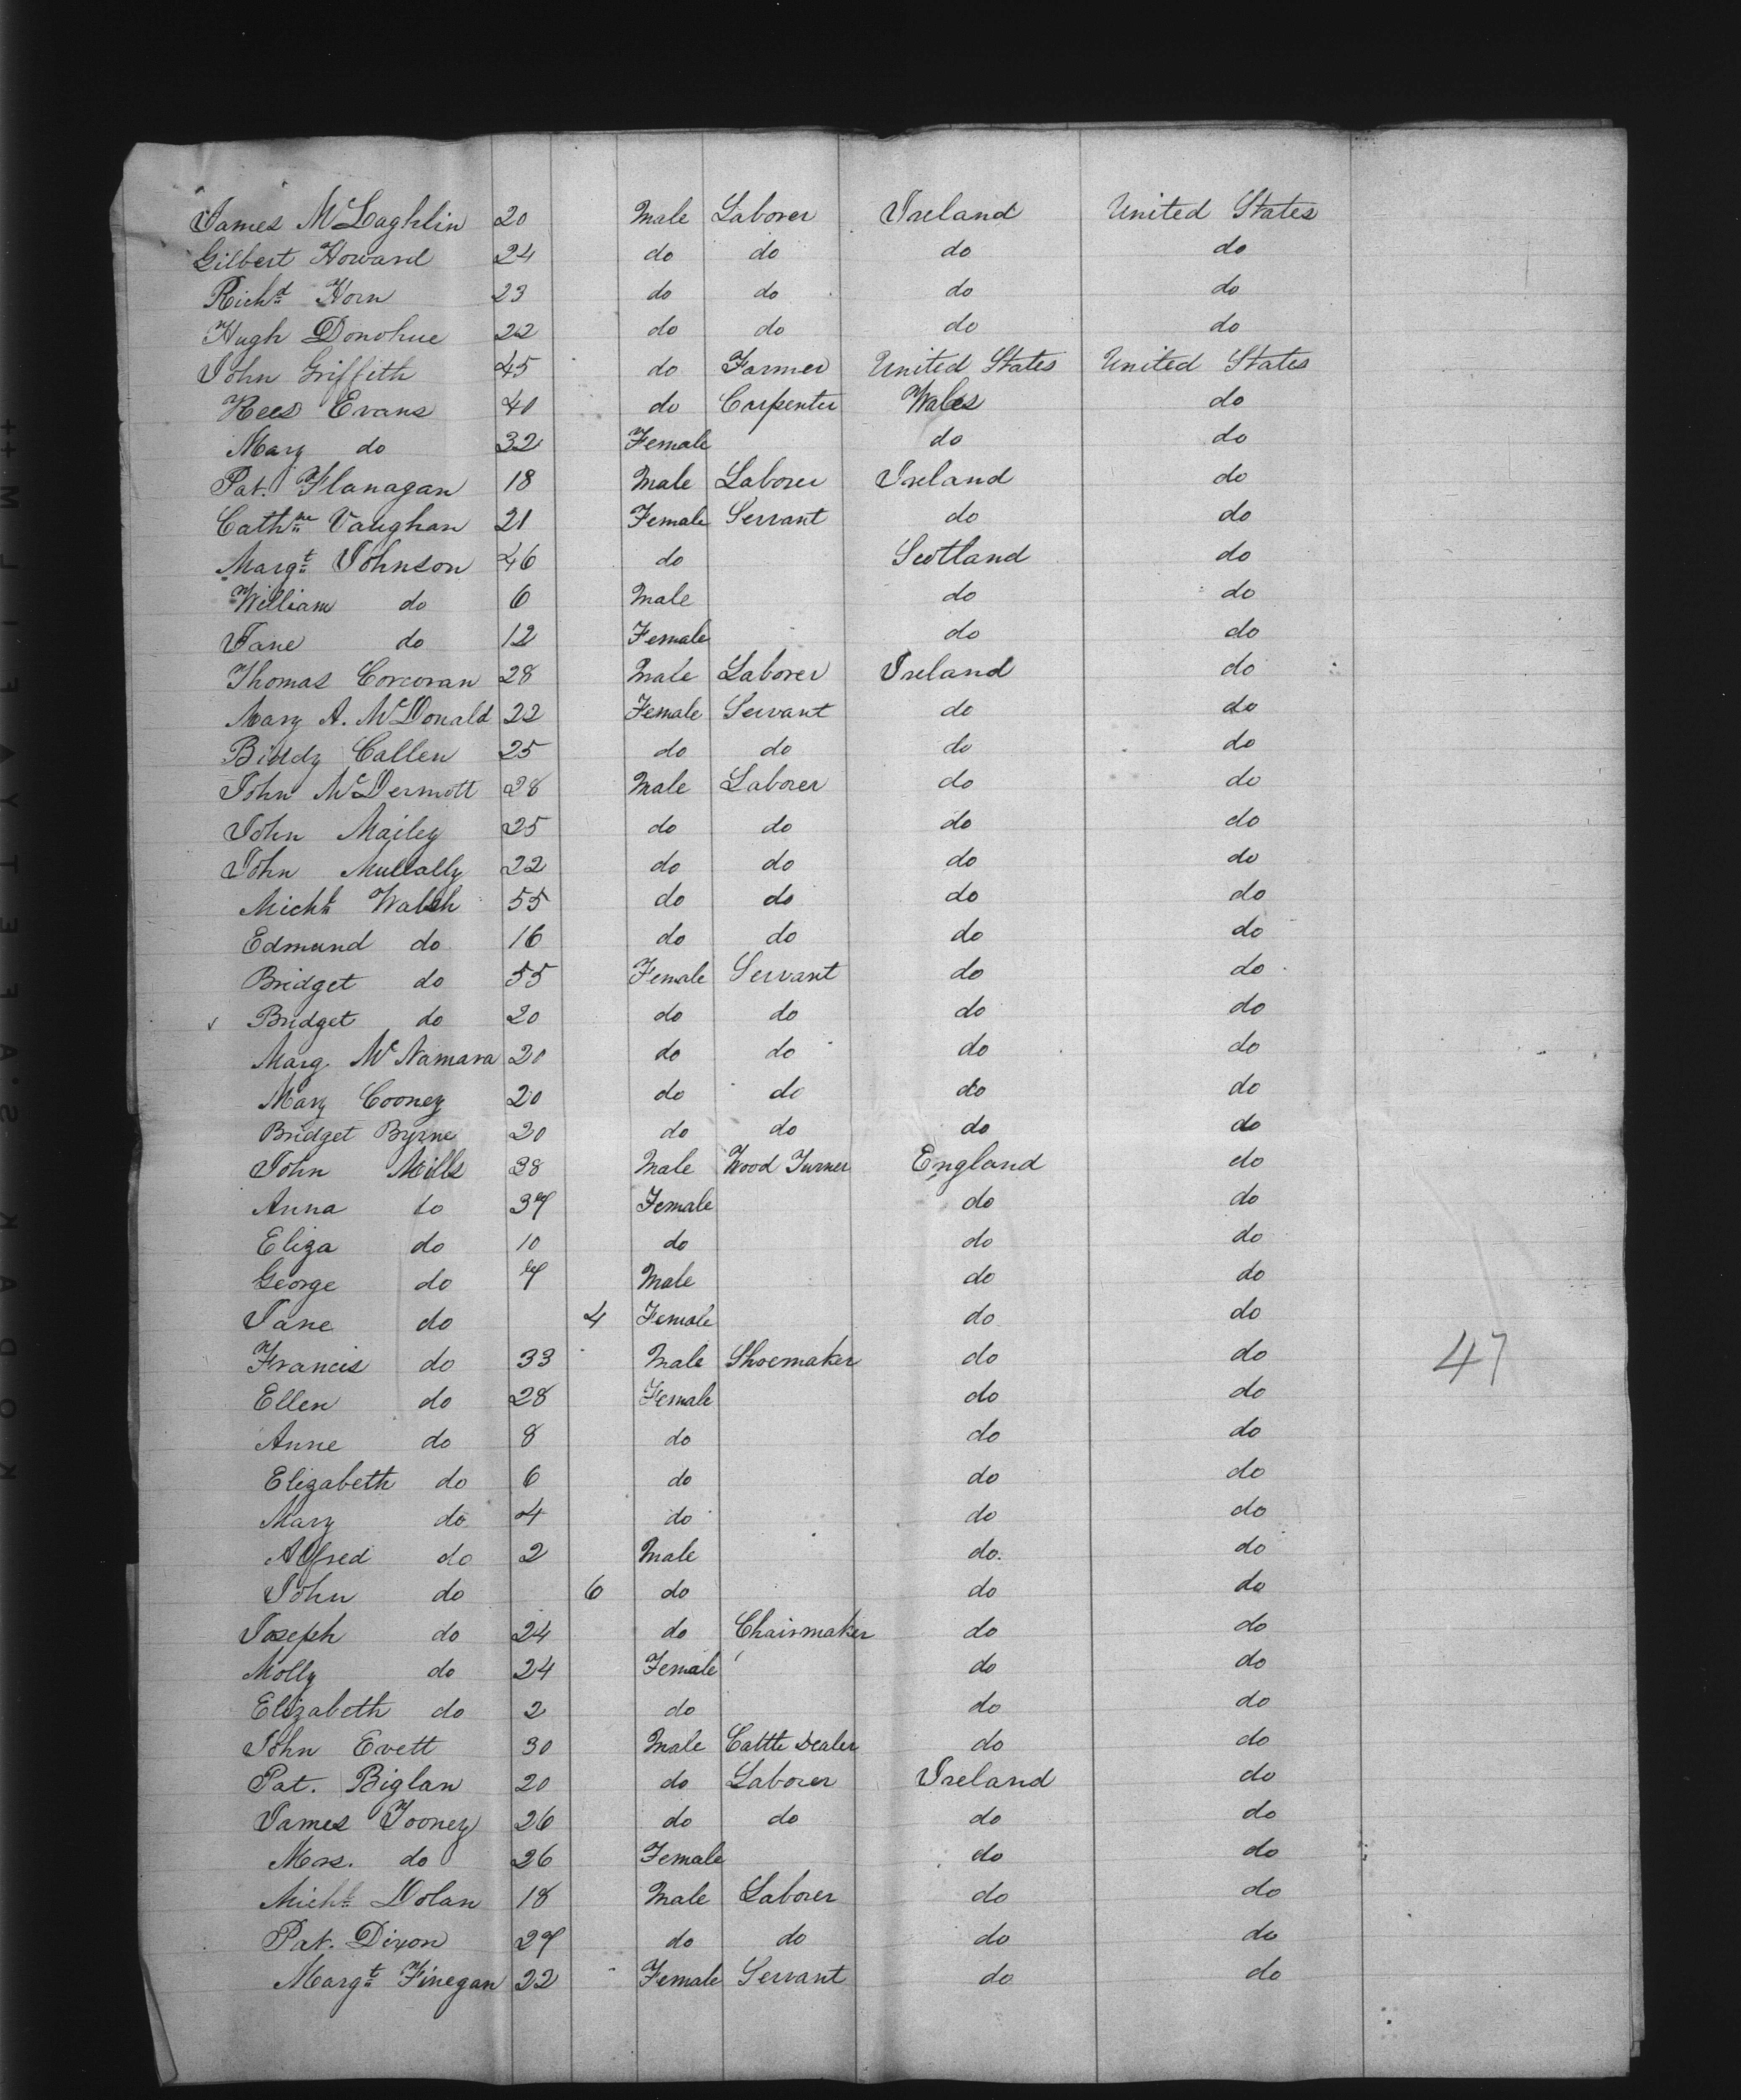 James McLaghlin 20 Male Laborer Ireland United States
Gilbert Howard 24 do do do do
Richd Horn 23 do do do do
Hugh Donohue 22 do do do do
John Griffith 45 do Farmer United States United States
Rees Evans 40 do Carpenter Wales do
Mary do 32 Female do do
Pat. Flanagan 18 Male Laborer Ireland do
Cathne Vaughan 21 Female Servant do do
Margt Johnson 46 do Scotland do
William do 6 Male do do
Jane do 12 Female do do
Thomas Corcoran 28 Male Laborer Ireland do
Mary A. McDonald 22 Female Servant do do
Biddy Callen 25 do do do do
John McDermott 28 Male Laborer do do
John Mailey 25 do do do do
John Mullally 22 do do do do
Michl Walsh 55 do do do do
Edmund do 16 do do do do
Bridget do 55 Female Servant do do
Bridget do 20 do do do do
Marg McNamara 20 do do do do
Mary Cooney 20 do do do do
Bridget Byrne 20 do do do do
John Mills 38 Male Wood Turner England do
Anna do 37 Female do do
Eliza do 10 do do do
George do 7 Male do do
Jane do 4 Female do do
Francis do 33 Male Shoemaker do do
47
Ellen do 28 Female do do
Anne do 8 do do do
Elizabeth do 6 do do do
Mary do 4 do do do
Alfred do 2 Male do. do
John do 6 do do do
Joseph do 24 do Chairmaker do do
Molly do 24 Female do do
Elizabeth do 2 do do do
John Evett 30 Male Cattle Dealer do do
Pat. Biglan 20 do Laborer Ireland do
James Tooney 26 do do do do
Mrs. do 26 Female do do
Michl Dolan 18 Male Laborer do do
Pat. Dixon 27 do do do do
Margt Finegan 22 Female Servant do do